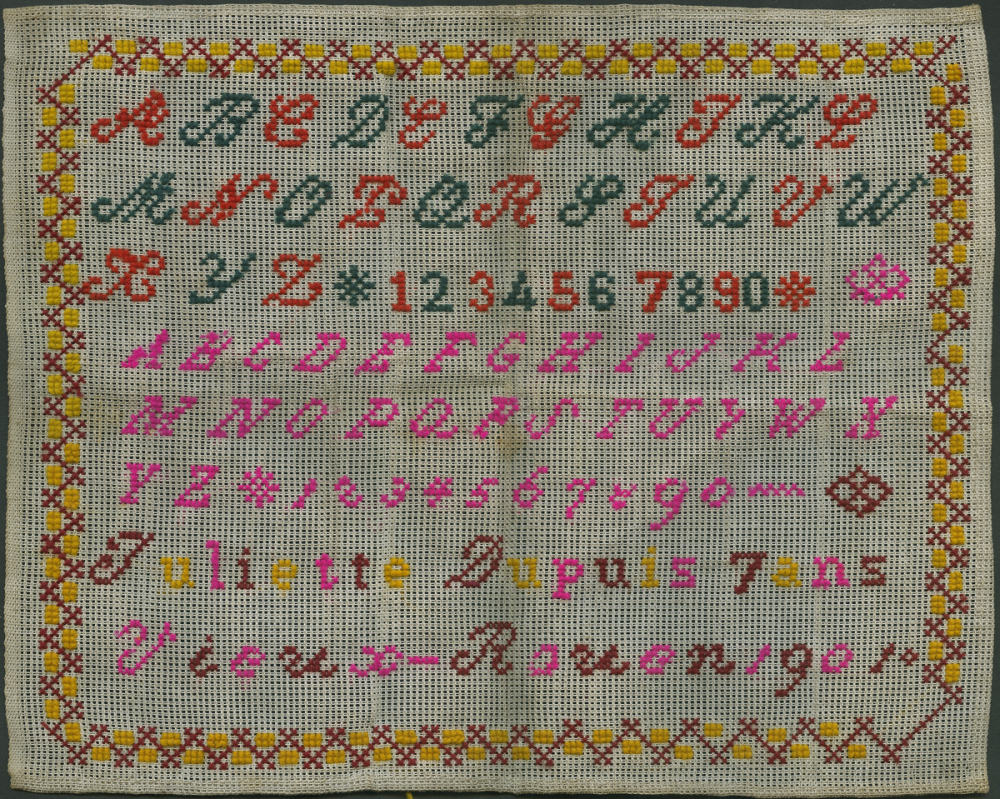 A B C D E F G H I K L
M N O P Q R S T U V W
X Y Z 1234567890
A B C D E F G H I J K L
M N O P Q R S T U V W X
Y Z 1 2 3 4 5 6 7 8 9 0
Juliette Dupuis 7 ans
Vieux-Rouen 1901